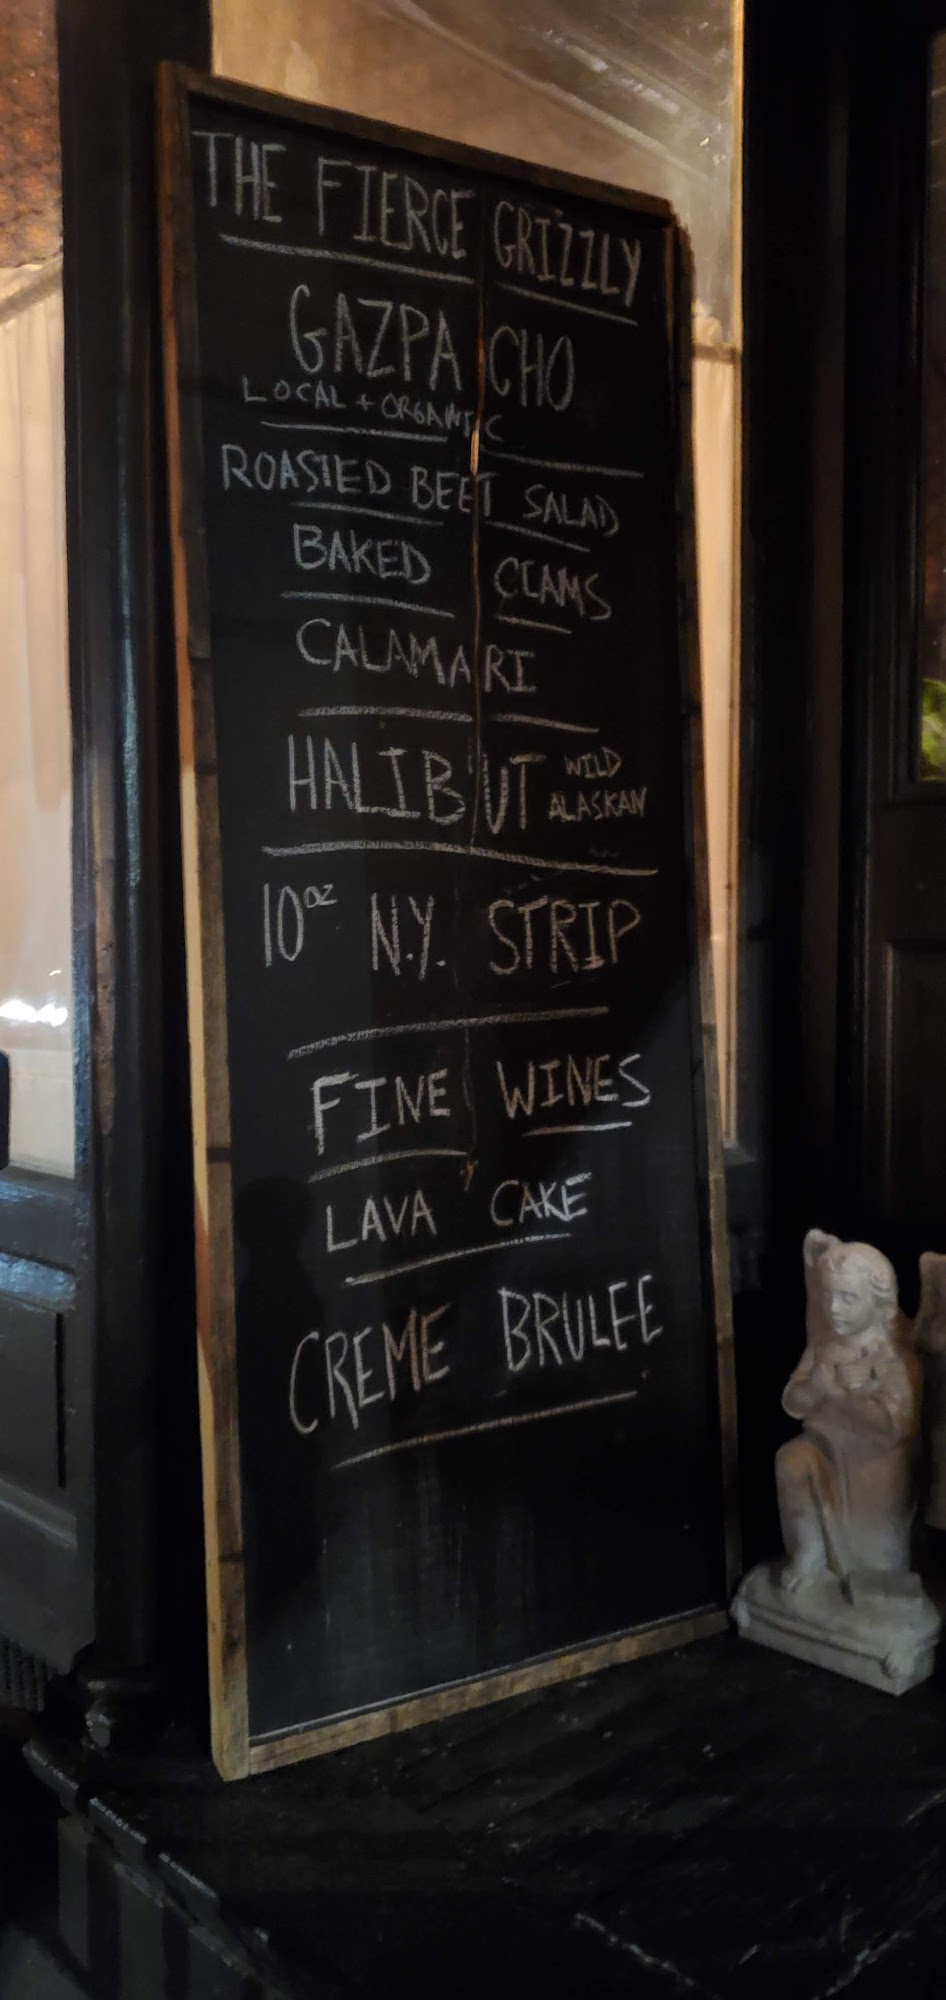 THE FIERCE GRIZZLY
GAZPACHO
LOCAL + ORGANIC
ROASTED BEET SALAD
BAKED CLAMS
CALAMARI
HALIBUT WILD ALASKAN
10oz N.Y. STRIP
FINE WINES
LAVA CAKE
CREME BRULEE